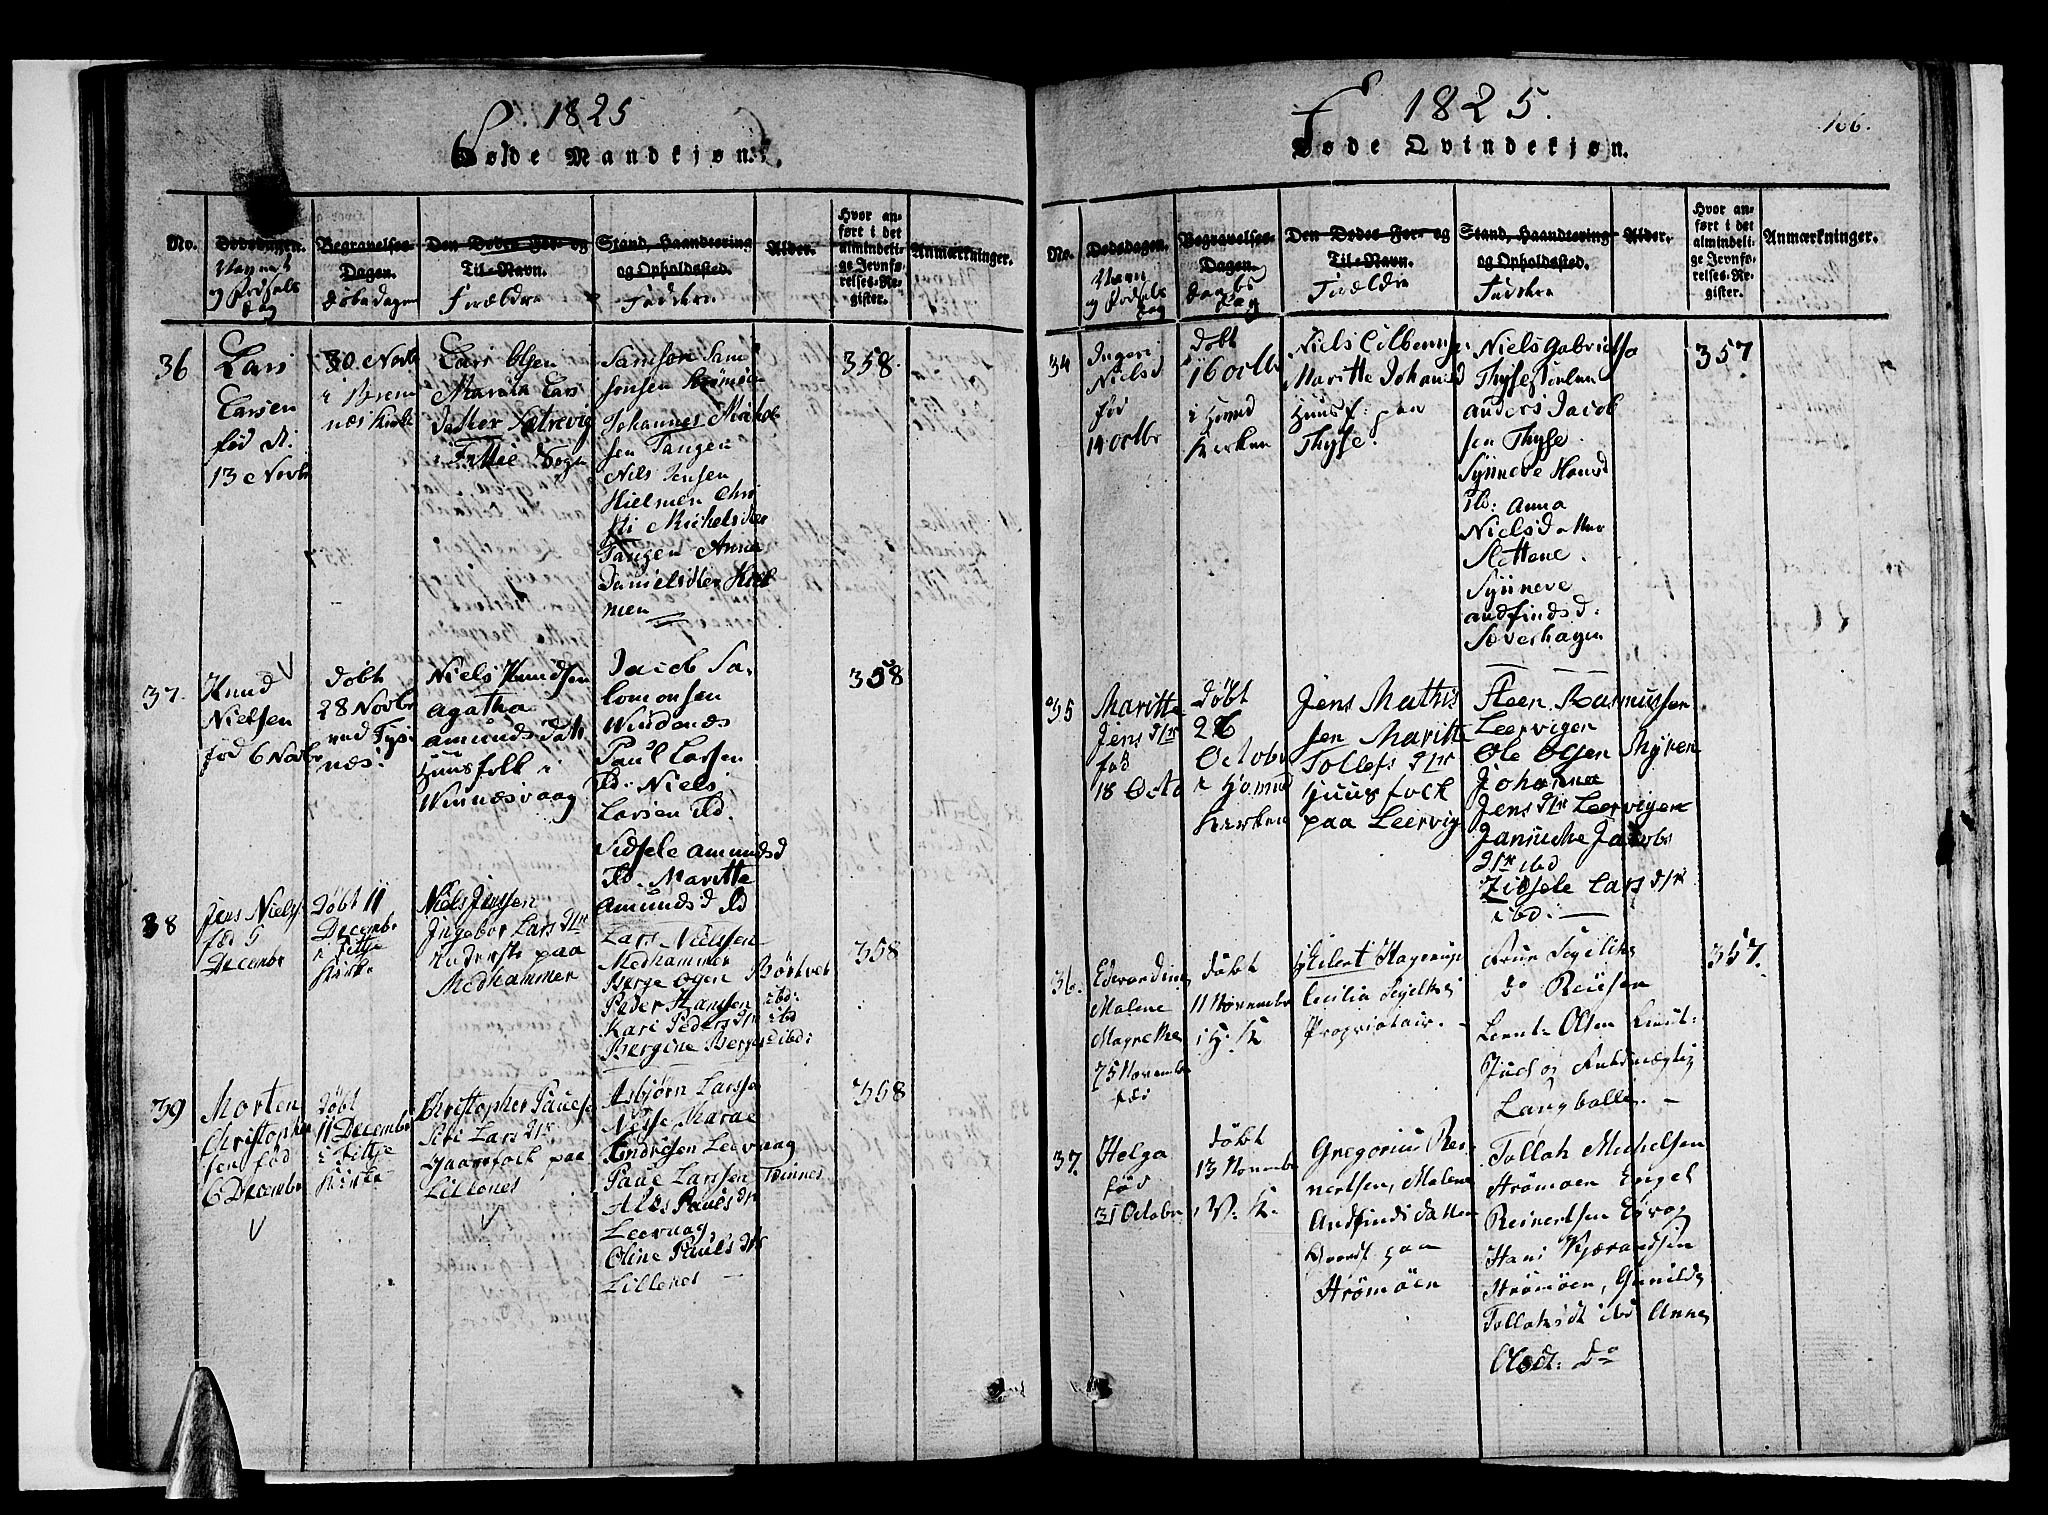 1825
Føde Mandkjøn.
No.
Dødsdagen.
Navnet
og Fødsels
Dag
Begravelses-
Dagen.
Døbedagen
Den Dødes For- og
Til-Navn.
Forældre
Stand, Haandtering
og Opholdssted.
Faddere
Alder.
Hvor an-
ført i det
almindeli-
ge Jevnfø-
relses-Re-
gister.
Anmærkninger.
36
Lars
Larsen
fød d:
13 Novbr
30 Novbr
i Brem
næs Kirke
Lars Olsen
Lars
Datter
i Fittie Sogn
Samson Sam
sonsen Strømøen
Johannes Michel
sen Tangen
Nils Jensen
Hielmen Chri
sti Michelsdter
Tangen Anna
Danielsdter Hiel
men
358.
37.
Knud
Nielsen
fød 6 Novbr
døbt
28 Novbr
ved Tys
næs:
Niels Knudsen
Agatha
Amundsdatt
Huusfolk i
Winnæsvaag
Jacob Sa-
lomonsen
Windenæs
Paul Larsen
ibd: Niels
Larsen ibd.
Sidsele Amundsd
ibd. Maritte
Amundsd ibd
358
38
Jens Niels
fød 5
Decembr
Døbt 11
Decembr
i Fittje
Kirke
Niels Jenssen
Ingebor Lars Dtr
Inderste paa
Medhammer
Lars Nielssen
Medhammer
Berge Ogen Børtvet
Peder Hanssen ibd:
Kari Peders Dtr ibd
Bergine Berges d ibd:
358
39
Morten
Christopher
sen fød
6 Decembr
Døbt
11 Decembr
i Fittje
Kirke
Christopher Paulse
Siri Lars Dtr
Gaardfolk paa
Lillenes
Asbjørn Larsse
Nesse
Andresen Leervaag
Paul Larssen Winnes
Ales Pauls dtr
Leervaag
Oline Pauls dtr
Lillenes
358
1825.
166.
Føde Qvindekjøn.
No.
Dødsdagen.
Navn
og Fødsels
Dag
Begravelses-
Dagen.
Daabs
Dag
Den Dødes For- og
Til-Navn.
Forældre
Stand, Haandtering
og Opholdssted.
Faddere
Alder.
Hvor an-
ført i det
almindeli-
ge Jevnfø-
relses-Re-
gister.
Anmærkninger.
34
Ingeri
Nielsd
fød
14 octbr
døbt
16 octbr
i
Kirken
Niels
Maritte Johansd
Huusf: paa
Thyse.
Niels Gabrielse
anders Jacob
sen Thyse.
Synneve Hansd
ibd: Anna
Nielsdatter
Slettene.
Synneve
andfindsd:
Søverhagen
357
35
Maritte
Jens Dtr
fød
18 Octo
Døbt
26
Octobr
i
Kirken
Jens Mathis
sen Maritte
Tollefs Dtr
Huusfock
paa Leervig
Steen Rasmussen
Leervigen
Ole Olsen Myren
Johanna
Jens Dtr Leervigen
Jannicke Jacobs
Dtr ibd
Zidsele Lars dtr
ibd:
36.
Edvardine
Malene
Magrethe
75 Novembr
fød
døbt
11 Novembr
i H. K
Eilert Hagerup
Cecilia
Proprietair.
Frue
do
Leut: Olsen
og Fuldmægtig
Langballe.
357.
37.
Helga
fød
31 Octobr
døbt
13 Novembr
i V. K.
Gregorius Rei-
nertsen, Malene
Andfindsdatter
paa
Strømøen
Tollak Michelsen
Strømøen Engel
Reinertsen
Hans
Strømøen, Gunilde
Tollaksdt ibd Anne
Olsdt: do